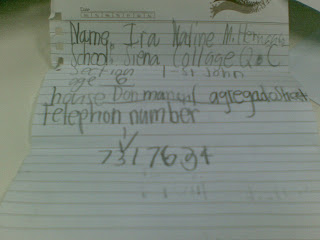 Name, Ira M.
School, Siena Collage Q.C
Section 1-St John
age 6
house Don manuel agregado Street
telephon number
7317634